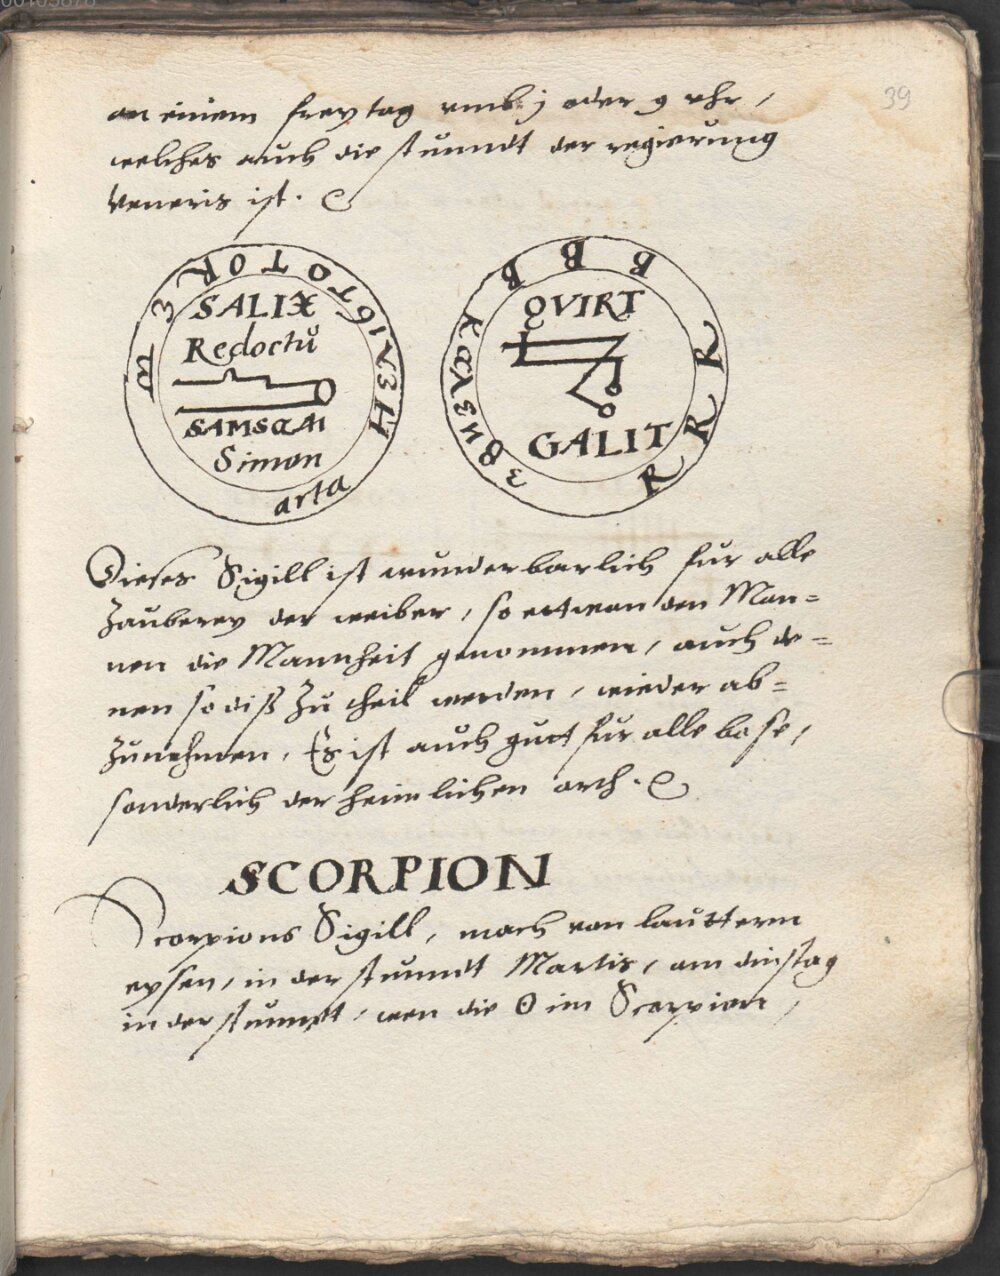 39
an einem freytag vmb j oder 9 vhr /
welches auch die stunndt der regierung
Veneris ist.
SALIX
Redoctū
SAMSON
Simon
arta
B B B B
QVIRT
GALIT
R R R
Dieses Sigill ist wunderbarlich fur alle
Zauberey der weiber, so ettwan den Man=
nen die Mannheit genommen, auch de=
nen so diß zu theil werden, wieder ab=
zunehmen. Es ist auch gutt fur alle bose,
sonderlich der heimlichen orth.
SCORPION
Scorpions Sigill, mach von lautterm
eysen, in der stunndt Martis, am dinstag
in der stunndt, wen die ʘ im Scorpion,